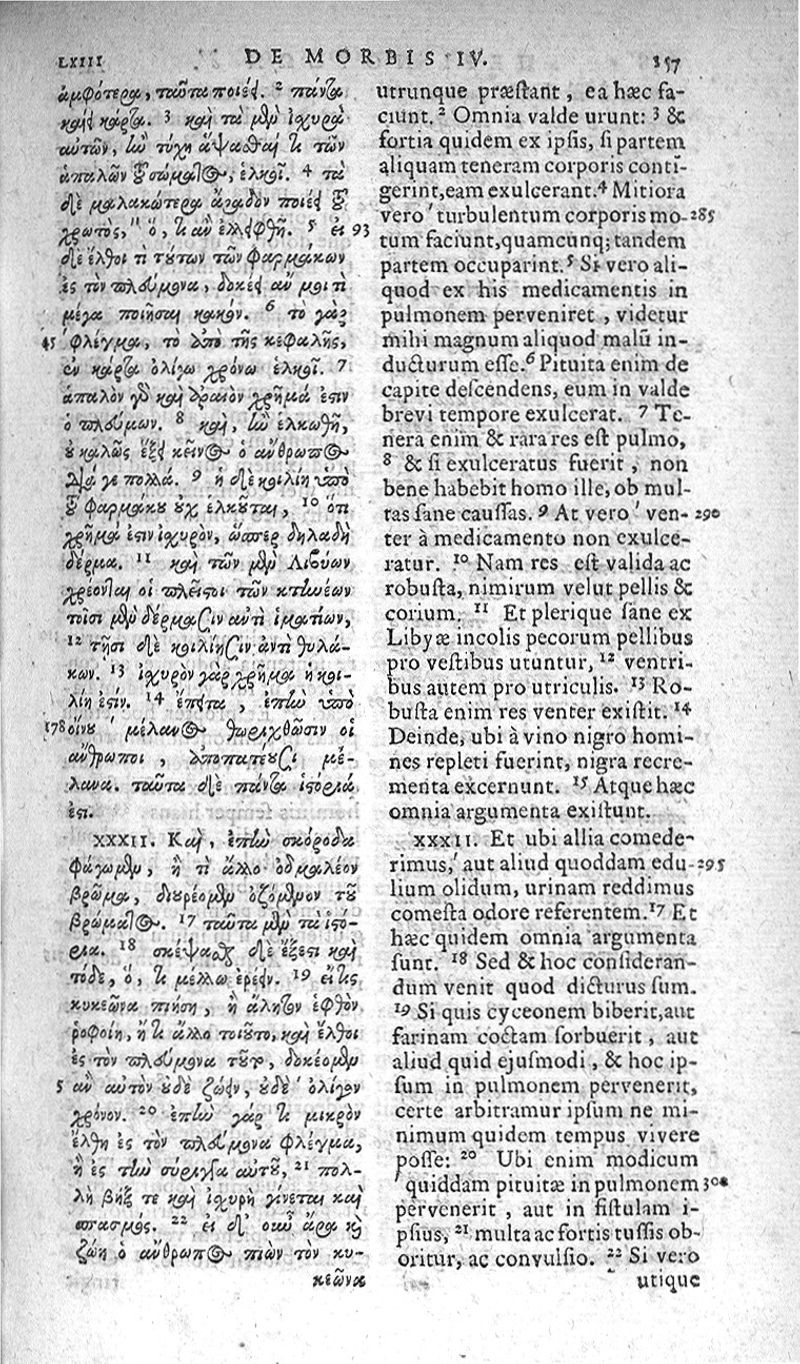 LXIII DE MORBIS IV. 357
ἀμφότερα, ταῦτα ποιέει. 2 πάντα
καίει κάρτα. 3 καὶ τὰ μὲν ἰσχυρὰ
αὐτῶν, ἢν τύχῃ ἅψασθαί τι τῶν
ἁπαλῶν τοῦ σώματος, ἑλκοῖ. 4 τὰ
δὲ μαλακώτερα ἄραδον ποιέει τοῦ
χρωτὸς, " ὅ, τι ἂν ἐλλιφθῇ. 5 εἰ 93
δὲ ἔλθοι τὶ τούτων τῶν φαρμάκων
ἐς τὸν πλεύμονα, δοκέει ἄν μοι τὶ
μέγα ποιῆσαι κακόν. 6 τὸ γὰρ
45 ' φλέγμα, τὸ ἀπὸ τῆς κεφαλῆς,
ἐν κάρτα ὀλίγῳ χρόνῳ ἑλκοῖ. 7
ἁπαλὸν γὰρ καὶ ἀραιὸν χρῆμά ἐστιν
ὁ πλεύμων. 8 καὶ, ἢν ἑλκωθῇ,
οὐ καλῶς ἕξει κεῖνος ὁ ἄνθρωπος
διά γε πολλά. 9 ἡ δὲ κοιλίη ὑπὸ
τοῦ φαρμάκου οὐχ ἑλκοῦται, 10 ὅτι
χρῆμά ἐστιν ἰσχυρὸν, ὥσπερ δηλαδὴ
δέρμα. 11 καὶ τῶν μὲν Λιβύων
χρέονται οἱ πλεῖστοι τῶν κτηνέων
τοῖσι μὲν δέρμασιν ἀντὶ ἱματίων,
12 τῇσι δὲ κοιλίῃσιν ἀντὶ θυλά-
κων. 13 ἰσχυρὸν γὰρ χρῆμα ἡ κοι-
λίη ἐστίν. 14 ἔπειτα, ἐπὴν ὑπὸ
178 οἴνου ' μέλανος θωρηχθῶσιν οἱ
ἄνθρωποι, ἀποπατέουσι μέ-
λανα. ταῦτα δὲ πάντα ἱστόριά
ἐστι.
XXXII. Καὶ, ἐπὴν σκόροδα
φάγωμεν, ἢ τὶ ἄλλο ὀδμαλέον
βρῶμα, διουρέομεν ὀζόμενον τοῦ
βρώματος. 17 ταῦτα μὲν τὰ ἱστό-
ρια. 18 σκέψασθαι δὲ ἔξεστι καὶ
τόδε, ὅ, τι μέλλω ἐρέειν. 19 εἴ τις
κυκεῶνα πιήσῃ, ἢ ἄλητον ἑφθὸν
ῥοφοίη, ἤ τι ἄλλο τοιοῦτο, καὶ ἔλθοι
ἐς τὸν πλεύμονα τοῦτο, δοκέομεν
5 ἂν αὐτὸν οὐδὲ ζώειν, οὐδὲ ' ὀλίγον
χρόνον. 20 ἐπὴν γάρ τι μικρὸν
ἔλθῃ ἐς τὸν πλεύμονα φλέγμα,
ἢ ἐς τὴν σύριγγα αὐτοῦ, 21 πολ-
λὴ βήξ τε καὶ ἰσχυρὴ γίνεται καὶ
σπασμός. 22 εἰ δ' οὖν ἄρα καὶ
ζώῃ ὁ ἄνθρωπος πιὼν τὸν κυ-
κεῶνα
utrunque præstant, ea hæc fa-
ciunt. 2 Omnia valde urunt: 3 &
fortia quidem ex ipsis, si partem
aliquam teneram corporis contĩ-
gerint, eam exulcerant. 4 Mitiora
vero ' turbulentum corporis mo- 285
tum faciunt, quamcunq; tandem
partem occuparint. 5 Si vero ali-
quod ex his medicamentis in
pulmonem perveniret, videtur
mihi magnum aliquod malũ in-
ducturum esse. 6 Pituita enim de
capite descendens, eum in valde
brevi tempore exulcerat. 7 Te-
nera enim & rara res est pulmo,
8 & si exulceratus fuerit, non
bene habebit homo ille, ob mul-
tas sane caussas. 9 At vero ' ven- 290
ter à medicamento non exulce-
ratur. 10 Nam res est valida ac
robusta, nimirum velut pellis &
corium. 11 Et plerique sane ex
Libyæ incolis pecorum pellibus
pro vestibus utuntur, 12 ventri-
bus autem pro utriculis. 13 Ro-
busta enim res venter existit. 14
Deinde, ubi à vino nigro homi-
nes repleti fuerint, nigra recre-
menta excernunt. 15 Atque hæc
omnia argumenta existunt.
XXXII. Et ubi allia comede-
rimus, ' aut aliud quoddam edu- 295
lium olidum, urinam reddimus
comesta odore referentem. 17 Et
hæc quidem omnia argumenta
sunt. 18 Sed & hoc consideran-
dum venit quod dicturus sum.
19 Si quis cyceonem biberit, aut
farinam coctam sorbuerit, aut
aliud quid ejusmodi, & hoc ip-
sum in pulmonem pervenerit,
certe arbitramur ipsum ne mi-
nimum quidem tempus vivere
posse: 20 Ubi enim modicum
' quiddam pituitæ in pulmonem 300
pervenerit, aut in fistulam i-
psius, 21 multa ac fortis tussis ob-
oritur, ac convulsio. 22 Si vero
utique